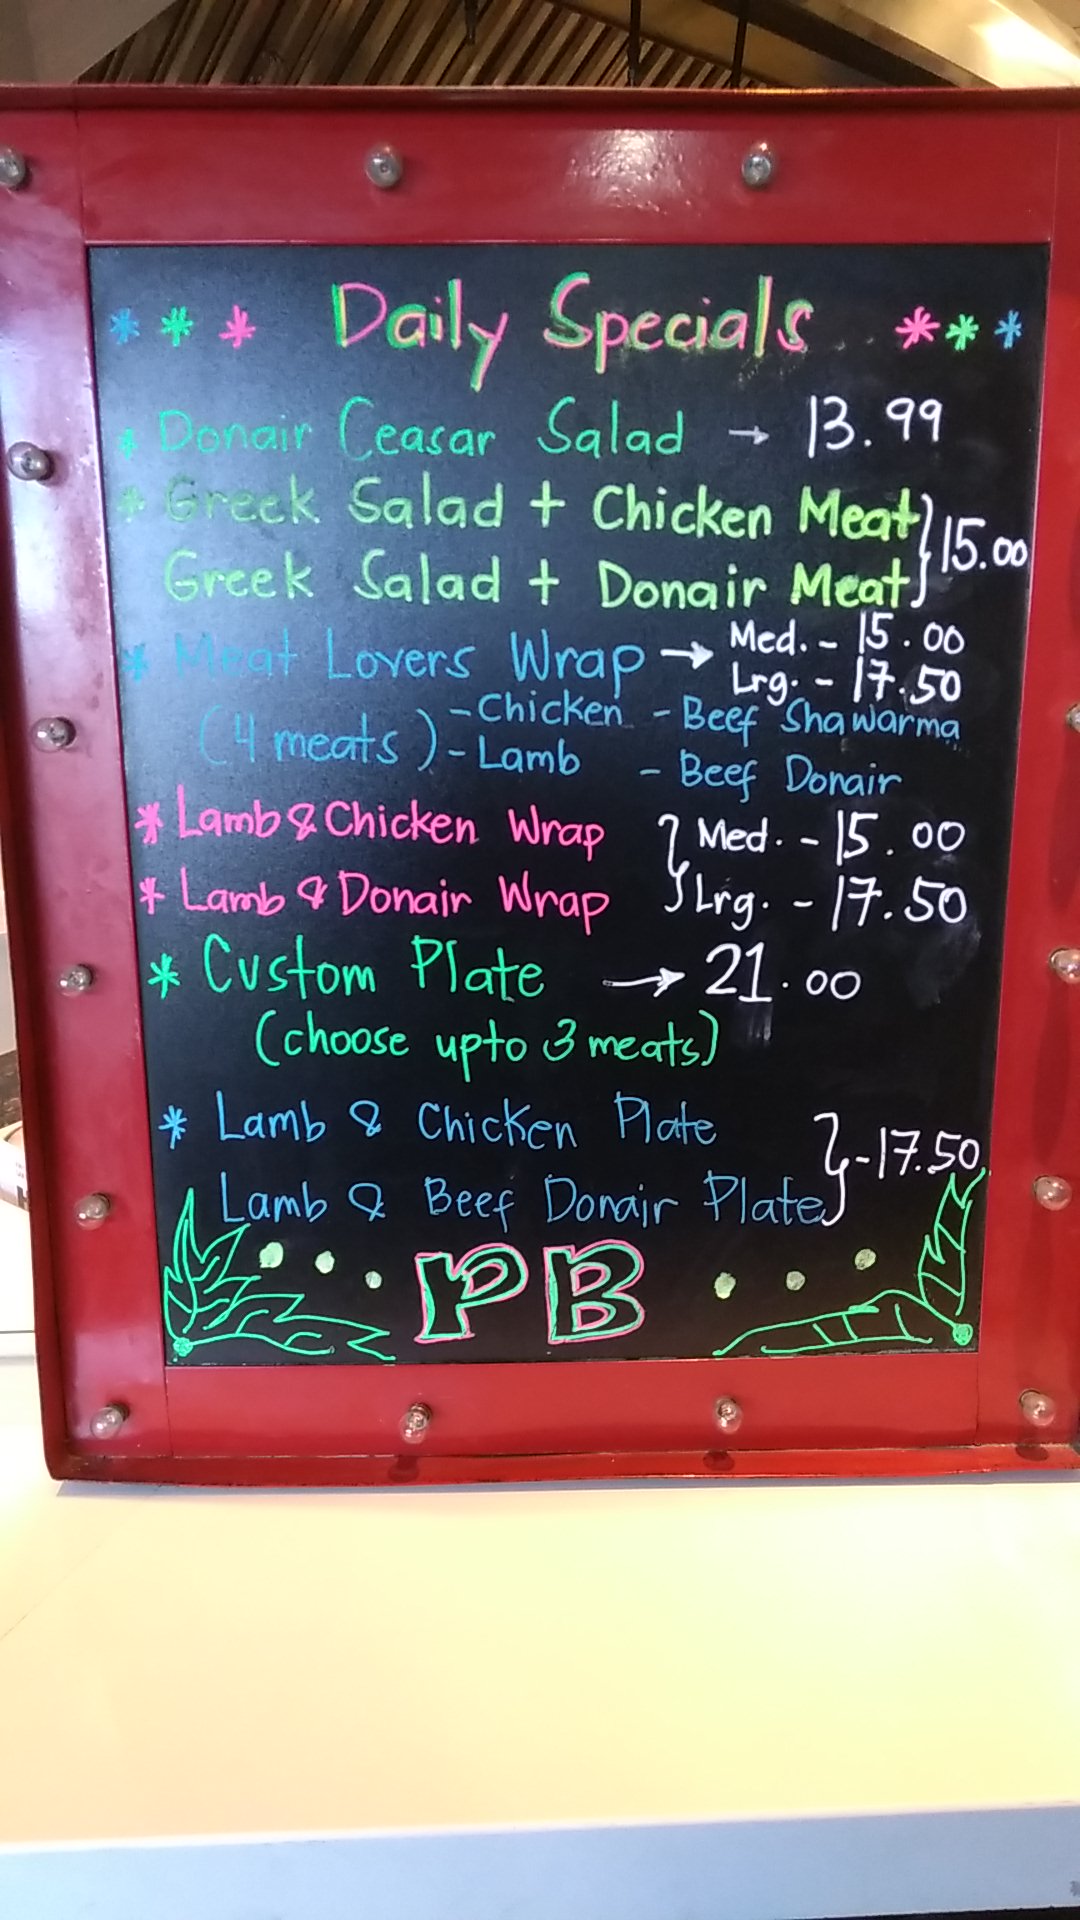 * * * Daily Specials * * *
* Donair Ceasar Salad → 13.99
* Greek Salad + Chicken Meat
Greek Salad + Donair Meat } 15.00
* Meat Lovers Wrap → Med. - 15.00
Lrg. - 17.50
(4 meats) - Chicken - Beef Shawarma
- Lamb - Beef Donair
* Lamb & Chicken Wrap } Med. - 15.00
* Lamb & Donair Wrap Lrg. - 17.50
* Custom Plate → 21.00
(choose upto 3 meats)
* Lamb & Chicken Plate } - 17.50
Lamb & Beef Donair Plate
PB